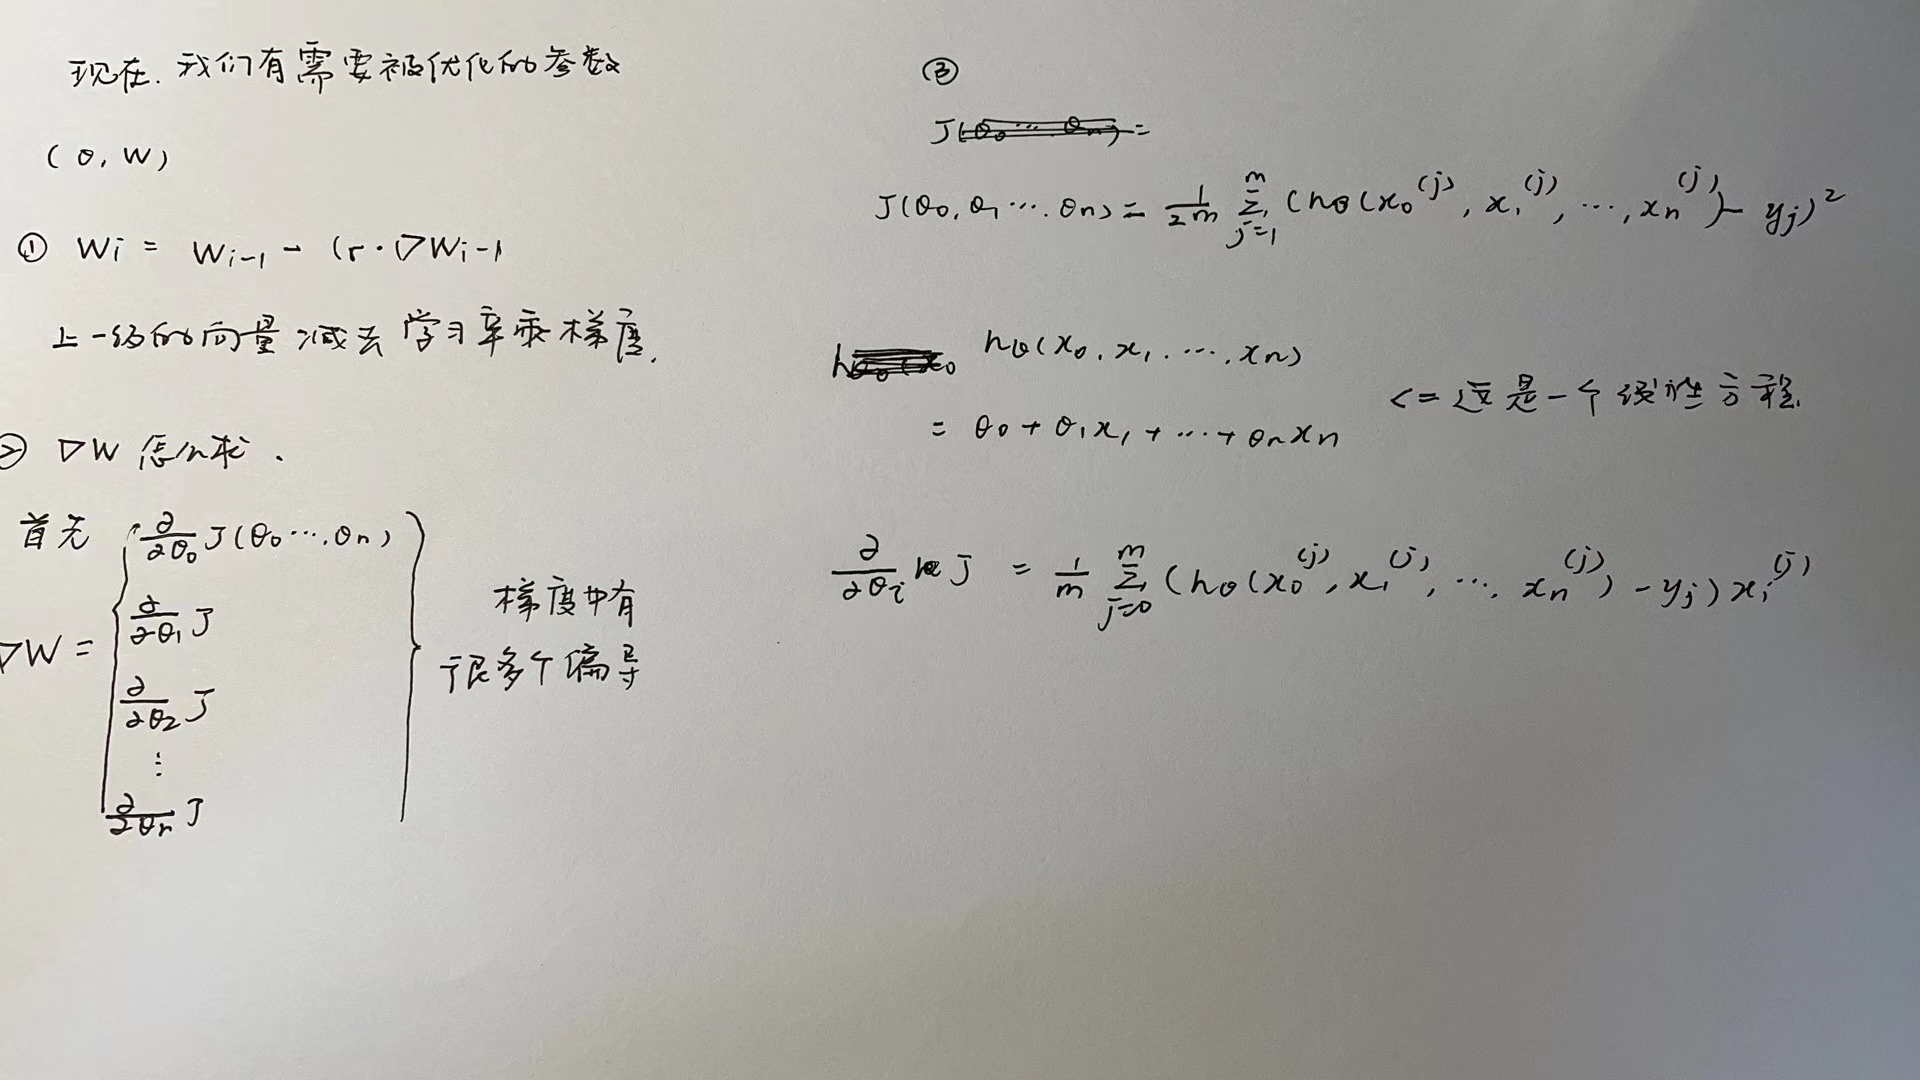 现在.我们有需要被优化的参数
(θ, W)
① Wi = Wi-1 - (r·▽Wi-1
上一级的向量减去学习率乘梯度.
② ▽W 怎么求.
首先
∂/∂θ0 J(θ0…,θn)
∂/∂θ1 J
▽W =
∂/∂θ2 J
⋮
∂/∂θn J
梯度中有
很多个偏导
③
J(θ0…θn) =
J(θ0, θ1…. θn) = 1/2m Σ_{j=1}^{m} (hθ(x0^(j), x1^(j), …, xn^(j)) - yj)^2
hθ(x0, x1. …, xn)
= θ0 + θ1x1 + … + θnxn
<= 这是一个线性方程.
∂/∂θi J = 1/m Σ_{j=0}^{m} (hθ(x0^(j), x1^(j), …, xn^(j)) - yj) xi^(j)